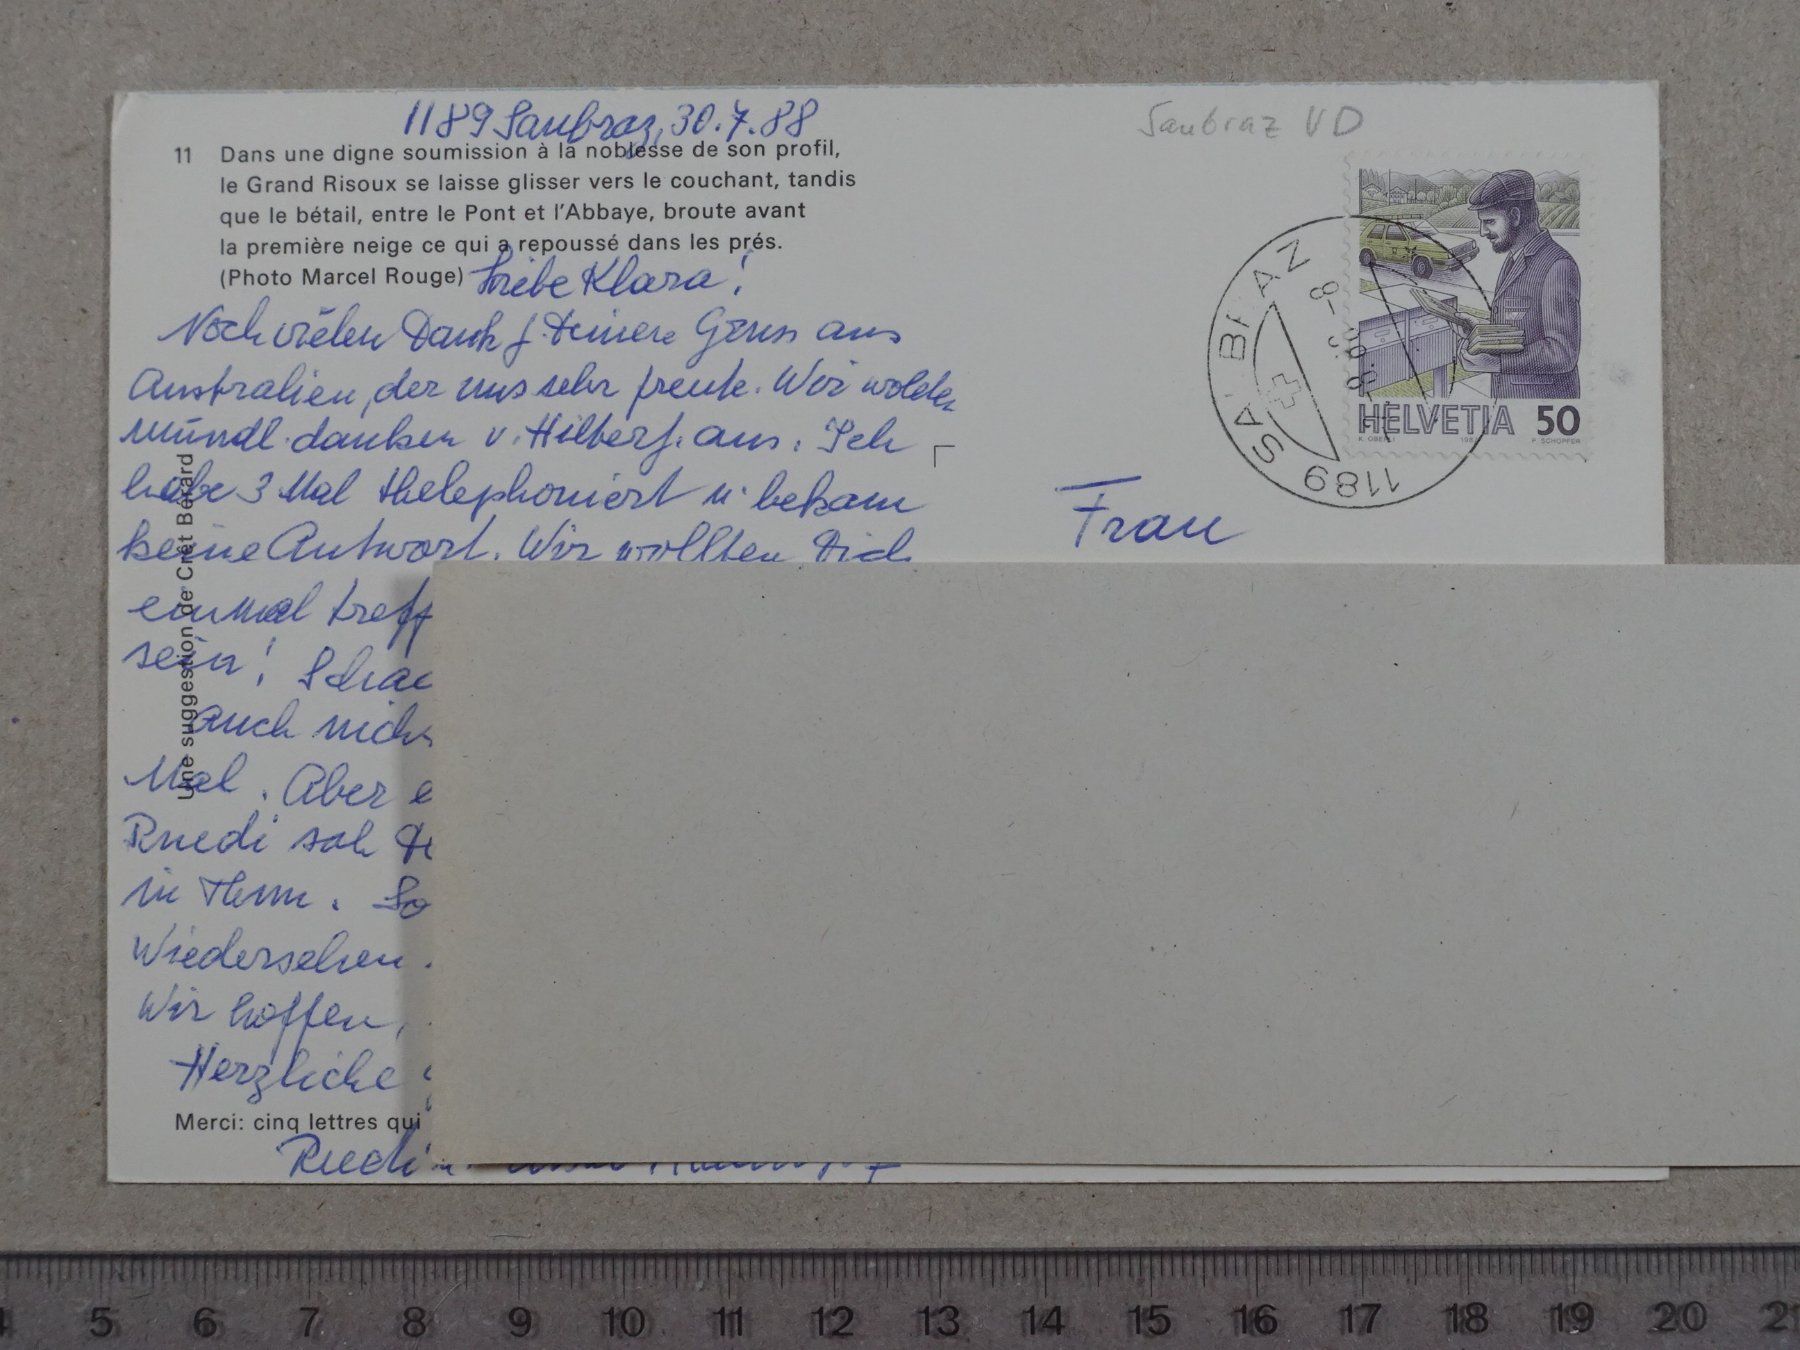 1189 Saubraz, 30.7.88
11 Dans une digne soumission à la noblesse de son profil,
le Grand Risoux se laisse glisser vers le couchant, tandis
que le bétail, entre le Pont et l'Abbaye, broute avant
la première neige ce qui a repoussé dans les prés.
(Photo Marcel Rouge)
Liebe Klara!
Noch vielen Dank f. Deinen Gruss aus
Australien, der uns sehr freute. Wir wollten
mündl. danken v. Hilterf. aus. Ich
habe 3 Mal thelephoniert u. bekam
keine Antwort. Wir wollten Dich
einmal treff
sein! Scha
Auch nicht
Mal. Aber
Ruedi sah
in Thun. So
Wiedersehen.
Wir hoffen,
Herzliche
Merci: cinq lettres qui
Ruedi
Une suggestion de Crêt Bérard
Saubraz VD
HELVETIA 50
K. OBERLI 198 P. SCHOPFER
1189 SAUBRAZ
Frau
4 5 6 7 8 9 10 11 12 13 14 15 16 17 18 19 20 21